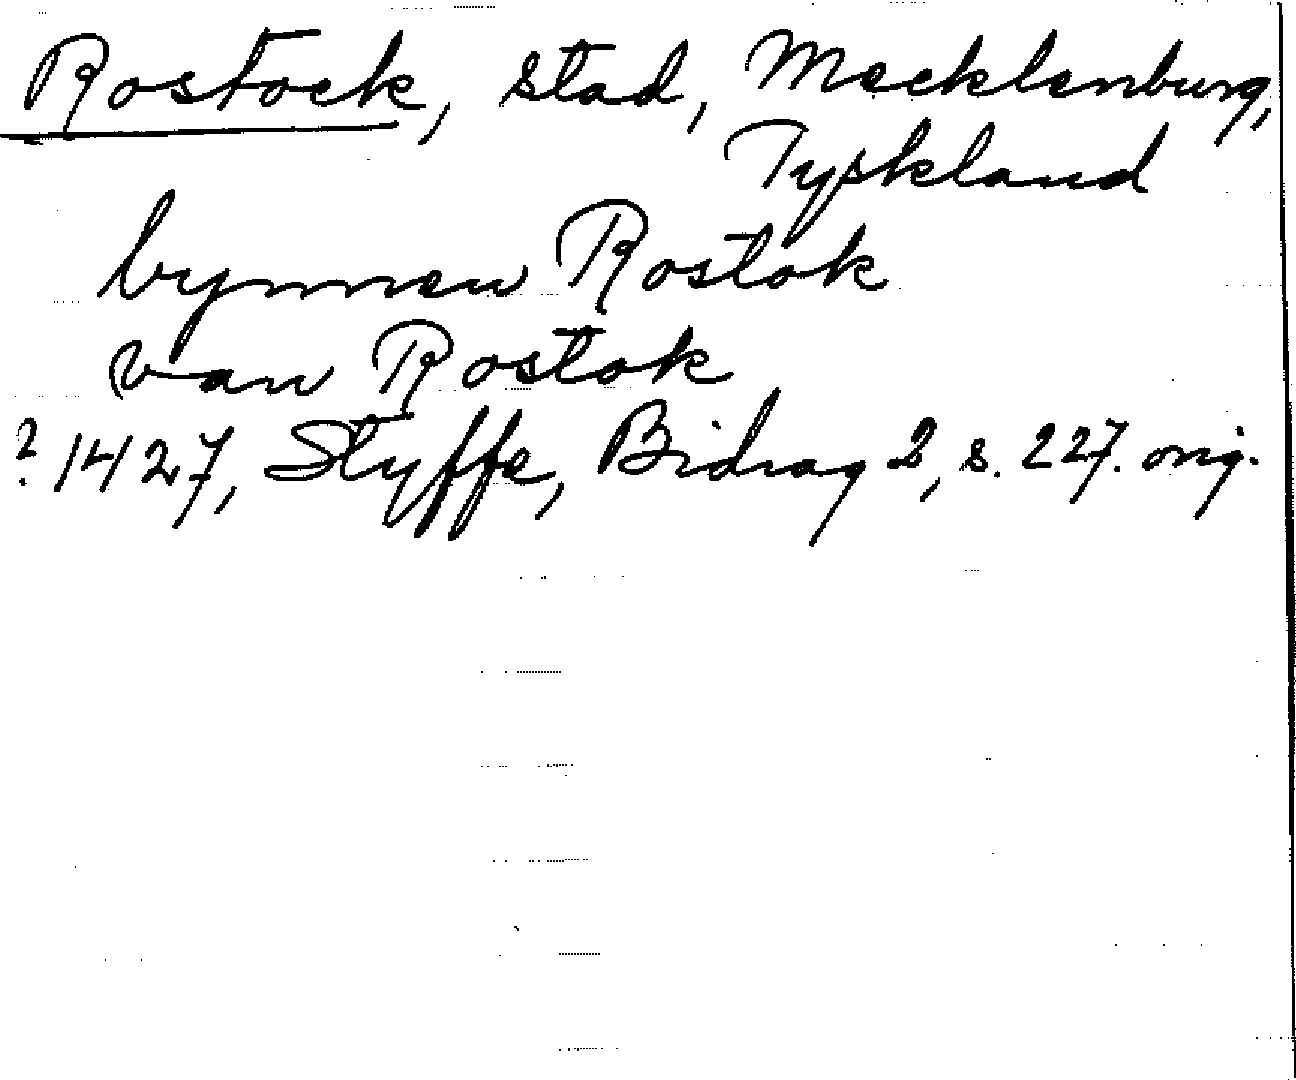 Rostock, stad, Mecklenburg,
Tyskland
bynnen Rostok
van Rostok
? 1427, Styffe, Bidrag 2, s. 227. orig.